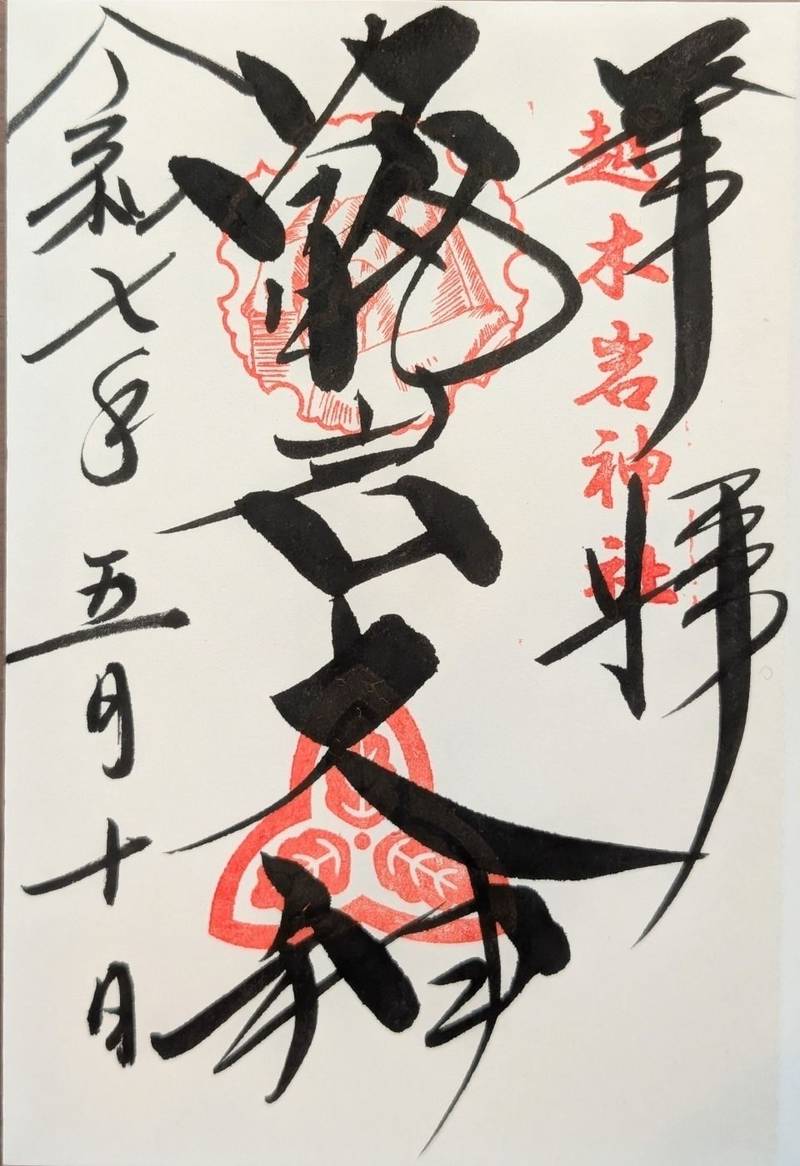 奉拝
越木岩神社
甑岩大神
令和七年五月十日